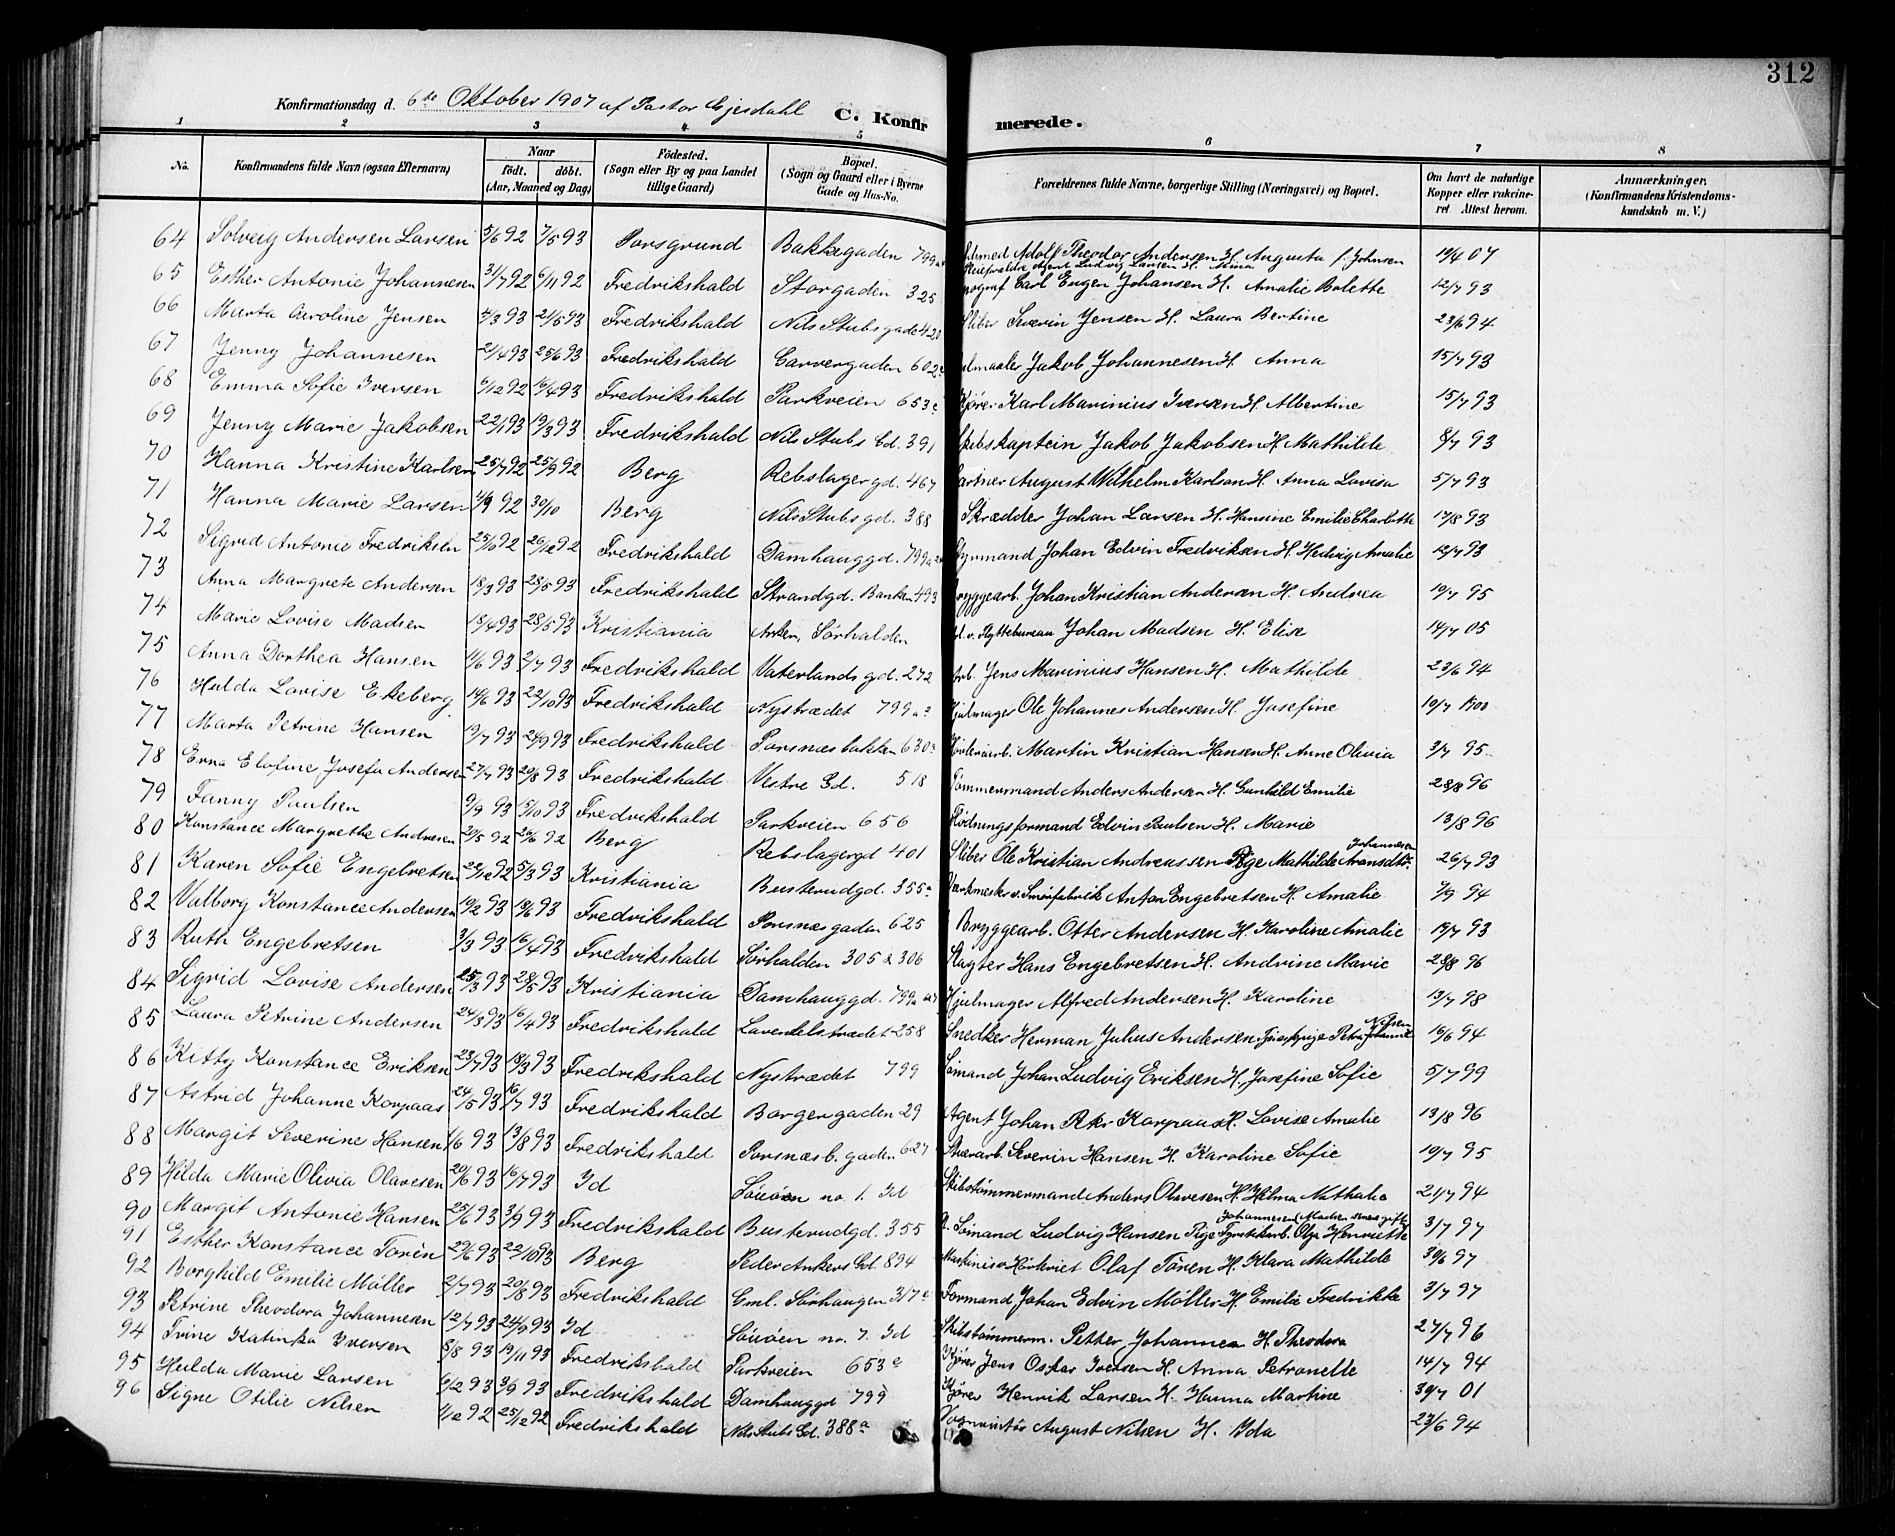 312
Konfirmationsdag d. 6te Oktober 1907 af Pastor Gjesdahl
C. Konfirmerede.
1 2 3 4 5 6 7 8
No. Konfirmandens fulde Navn (ogsaa Efternavn) Naar født. døbt. (Aar, Maaned og Dag) Fødested. (Sogn eller By og paa Landet tillige Gaard) Bopæl. (Sogn og Gaard eller i Byerne Gade og Hus-No. Forældrenes fulde Navne, borgerlige Stilling (Næringsvei) og Bopæl. Om havt de naturlige Kopper eller vakcineret Attest herom. Anmærkninger. (Konfirmandens Kristendomskundskab m. V.)
64 Solveig Andersen Larsen 5/6 92 7/5 93 Porsgrund Bakkegaden 799 Adolf Theodor Andersen H. Augusta f. Johnsen 12/4 07
Pleieforældre Agent Ludvig Larsen H. Alma
65 Esther Antonie Johannesen 31/7 92 6/11 92 Fredrikshald Storgaden 325 Carl Eugen Johansen H. Amalie Bolette 12/7 93
66 Marta Caroline Jensen 4/3 93 21/6 93 Fredrikshald Nils Stubs gade 428 Sliber Severin Jensen H. Laura Bertine 23/6 94
67 Jenny Johannesen 21/4 93 25/6 93 Fredrikshald Garvergaden 602 Jakob Johannesen H. Anna 15/7 93
68 Emma Sofie Iversen 6/12 92 16/4 93 Fredrikshald Parkveien 653 Kjører Karl Marinius Iversen H. Albertine 15/7 93
69 Jenny Marie Jakobsen 22/1 93 19/3 93 Fredrikshald Nils Stubs Gd. 391 Skibskaptein Jakob Jakobsen H. Mathilde 8/7 93
70 Hanna Kristine Karlsen 25/7 92 25/9 92 Berg Rebslagergd. 467 Gartner August Wilhelm Karlson H. Anna Lovisa 5/7 93
71 Hanna Marie Larsen 4/9 92 30/10 Berg Nils Stubs gd. 388 Skrædder Johan Larsen H. Hansine Emilie Charlotte 17/8 93
72 Sigrid Antonie Fredriksen 25/6 92 26/12 92 Fredrikshald Damhauggd. 799 Styrmand Johan Edvin Fredriksen H. Hedvig Amalie 12/7 93
73 Anna Margrete Andersen 18/3 93 28/5 93 Fredrikshald Strandgd. Banken 493 Bryggearb. Johan Kristian Andersen H. Andrea 19/7 95
74 Marie Lovise Madsen 15/4 93 28/5 93 Kristiania Anker, Sørhalden Flyttebureau Johan Madsen H. Elise 14/7 05
75 Anna Dorthea Hansen 11/6 93 2/7 93 Fredrikshald Vaterlands gd. 272 Arb. Jens Marinius Hansen H. Mathilde 23/6 94
76 Hulda Lovise Ekeberg 14/6 93 22/10 93 Fredrikshald Nystrædet 799 Hjulmager Ole Johannes Andersen H. Josefine 19/7 1900
77 Marta Petrine Hansen 19/7 93 24/9 93 Fredrikshald Porsnæsbakken 630 Martin Kristian Hansen H. Anne Olivia 3/7 95
78 Erna Elofine Josefa Andersen 27/7 93 20/8 93 Fredrikshald Vestre Gd. 518 Tømmermand Anders Andersen H. Gunhild Emilie 28/8 96
79 Fanny Paulsen 9/9 93 5/10 93 Fredrikshald Parkveien 656 Flødningsformand Edvin Paulsen H. Marie 13/8 96
80 Konstance Margrethe Andresen 20/5 92 26/6 92 Berg Rebslagergd 401 Sliber Ole Kristian Andreassen Pige Mathilde Johannesen Aronsdtr. 26/7 93
81 Karen Sofie Engebretsen 22/12 92 5/3 93 Kristiania Busterudgd. 355 Værkmester v. Smørfabrik Anton Engebretsen H. Amalie 7/9 94
82 Valborg Konstance Andersen 19/2 93 18/6 93 Fredrikshald Porsnæsgaden 625 Bryggearb. Otter Andersen H. Karoline Amalie 19/7 93
83 Ruth Engebretsen 3/3 93 16/4 93 Fredrikshald Sørhalden 305 & 306 Slagter Hans Engebretsen H. Andrine Marie 28/8 96
84 Sigrid Lovise Andersen 25/3 93 28/5 93 Kristiania Damhauggd. 799 Hjulmager Alfred Andersen H. Karoline 13/7 98
85 Laura Petrine Andersen 24/3 93 16/4 93 Fredrikshald Lavendelstrædet 258 Snedker Herman Julius Andersen Petra Johanne Nilsen 16/6 94
86 Kitty Konstance Eriksen 23/7 93 18/3 93 Fredrikshald Nystrædet 799 Sømand Johan Ludvig Eriksen H. Josefine Sofie 5/7 99
87 Astrid Johanne Korpaas 24/5 93 16/7 93 Fredrikshald Borgergaden 29 Agent Johan Korpaas H. Lovise Amalie 13/8 96
88 Margit Severine Hansen 1/6 93 13/8 93 Fredrikshald Porsnæsb. gaden 627 Severin Hansen H. Karoline Sofie 19/7 95
89 Hilda Marie Olivia Olavesen 20/6 93 16/7 93 Id Søuøen no. 1. Id Skibstømmermand Anders Olavesen H. Hilma Nathalie 21/7 94
90 Margit Antonie Hansen 25/6 93 3/9 93 Fredrikshald Busterudgd. 355 Sømand Ludvig Hansen Pige Fyrstikarb. Olga Henriette Johannesen (Madsen senere gift) 3/7 97
91 Esther Konstance Torén 29/6 93 22/10 93 Berg Peder Ankers Gd. 894 Olaf Tören H. Klara Mathilde 30/6 97
92 Borghild Emilie Møller 2/7 93 20/8 93 Fredrikshald Gml. Sørhaugen 317 Formand Johan Edvin Møller H. Emilie Fredrikke 3/7 97
93 Petrine Theodora Johannesen 12/7 93 24/9 93 Id Søuøen no. 7. Id Skibstømmerm. Petter Johannesen H. Theodora 27/7 96
94 Trine Katinka Iversen 5/8 93 19/11 93 Fredrikshald Parkveien 653 Kjører Jens Oskar Iversen H. Anna Petronelle 14/7 94
95 Hulda Marie Larsen 6/2 93 3/9 93 Fredrikshald Damhauggd 799 Kjører Henrik Larsen H. Hanna Martine 30/7 01
96 Signe Otilie Nilsen 1/12 92 25/12 92 Fredrikshald Nils Stubs Gd. 388 a August Nilsen H. Ida 23/6 94